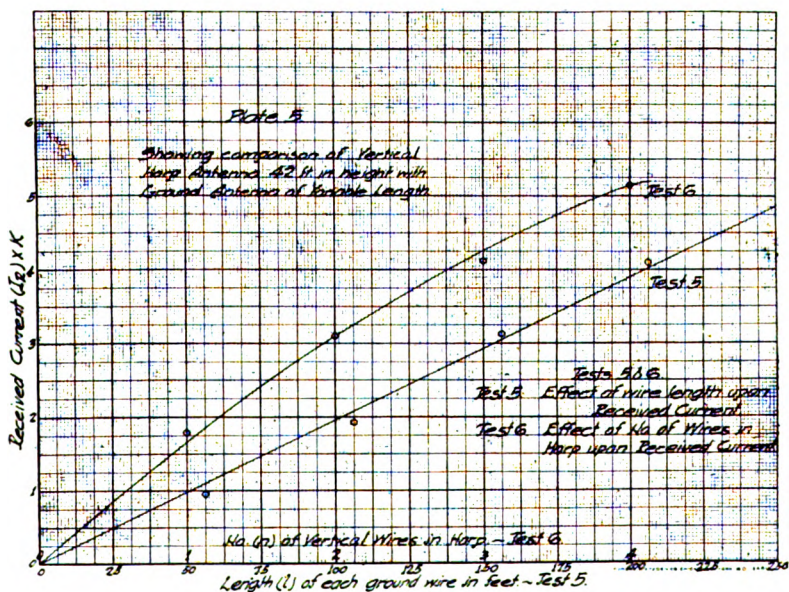 Plate 5
Showing comparison of Vertical
Harp Antenna 42 ft in height with
Ground Antenna of Variable Length
Test 6
Test 5
Tests 5 & 6
Test 5 Effect of wire length upon
Received Current
Test 6 Effect of No of Wires in
Harp upon Received Current
Received Current (I_R) X K
6
5
4
3
2
1
0
No (n) of Vertical Wires in Harp - Test 6
0 1 2 3 4
0 25 50 75 100 125 150 175 200 225 250
Length (l) of each ground wire in feet - Test 5.